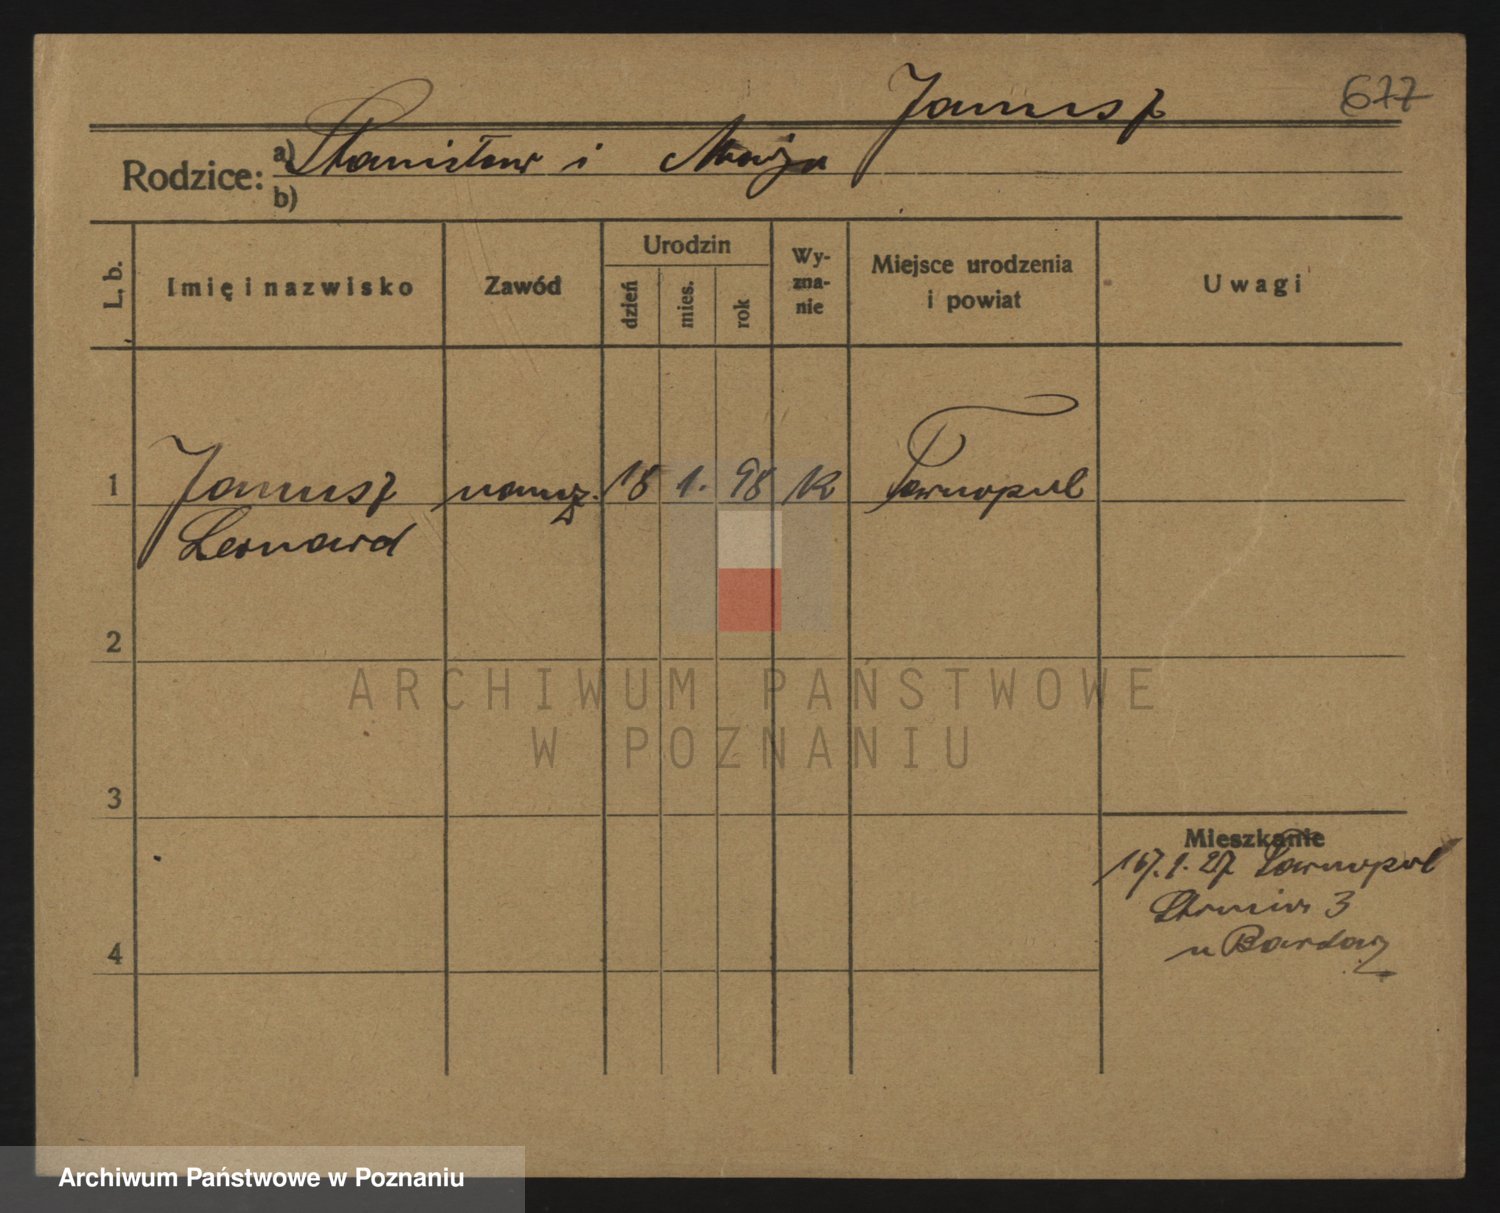 Janusz
677
Rodzice: a) Stanisław i Marja
b)
L. b.
Imię i nazwisko
Zawód
Urodzin
dzień
mies.
rok
Wy-
zna-
nie
Miejsce urodzenia
i powiat
Uwagi
1 Janusz naucz. 18 1. 98 Rk Tarnopol
Leonard
2
ARCHIWUM PAŃSTWOWE
W POZNANIU
3
Mieszkanie
1. 27 Tarnopol
3
4
u
Archiwum Państwowe w Poznaniu